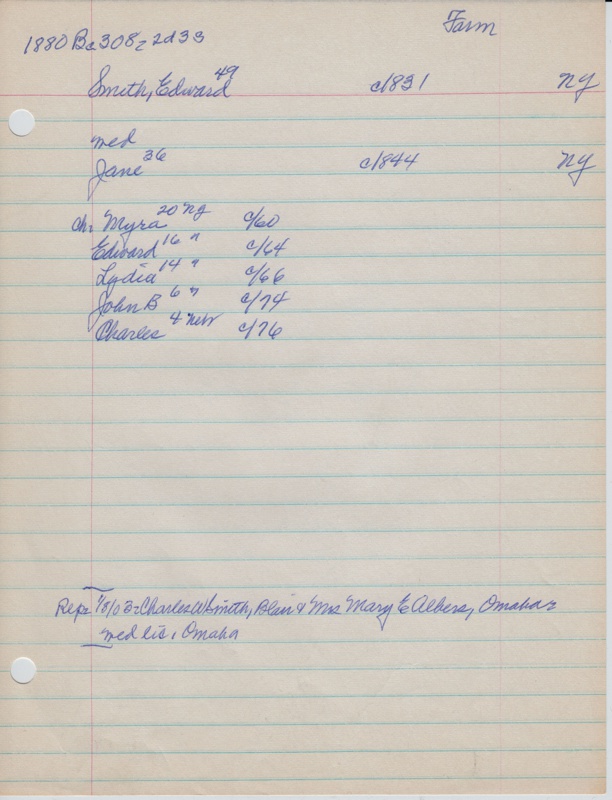 Farm
1880 Bc 308 = 2d33
Smith, Edward 49 c/1831 NY
med
Jane 36 c/1844 NY
Ch: Myra 20 NY c/60
Edward 16 " c/64
Lydia 14 " c/66
John B 6 " c/74
Charles 4 Neb c/76
Rep= 1/8/03= Charles W Smith, Blair & Mrs Mary E Albers, Omaha=
med lic, Omaha